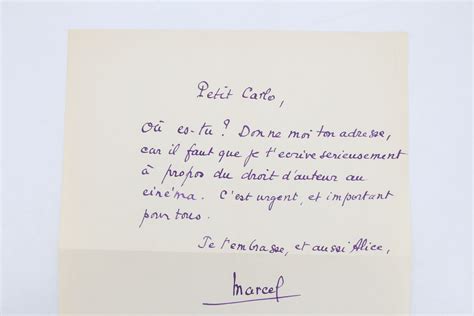 Petit Carlo,
Où es-tu ? Donne moi ton adresse,
car il faut que je t'ecrive serieusement
à propos du droit d'auteur au
cinéma. C'est urgent, et important
pour tous.
Je t'embrasse, et aussi Alice,
Marcel